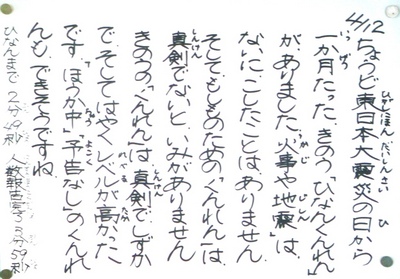 4/12
ちょうど東日本大震災の日から
一か月たった、きのう「ひなんくんれん」
が、ありました。火事や地震は、
ないにこしたことはありません。
そしてもしものための「くんれん」は、
真剣でないといみがありません。
きのうの「くんれん」は真剣でしずか
で、そしてはやくレベルが高かった
です。「ほうか中」「予告なし」のくんれ
んも、できそうですね。
ひなんまで 2分49秒 人数報告完了3分59秒